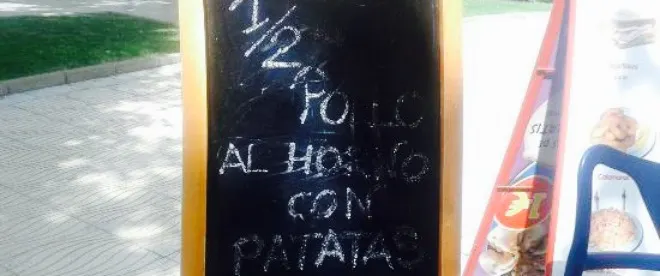 1/2
POLLO
AL HORNO
CON
PATATAS
Calamares